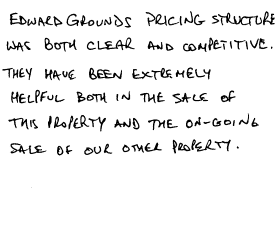 EDWARD GROUNDS PRICING STRUCTURE
WAS BOTH CLEAR AND COMPETITIVE.
THEY HAVE BEEN EXTREMELY
HELPFUL BOTH IN THE SALE OF
THIS PROPERTY AND THE ON-GOING
SALE OF OUR OTHER PROPERTY.